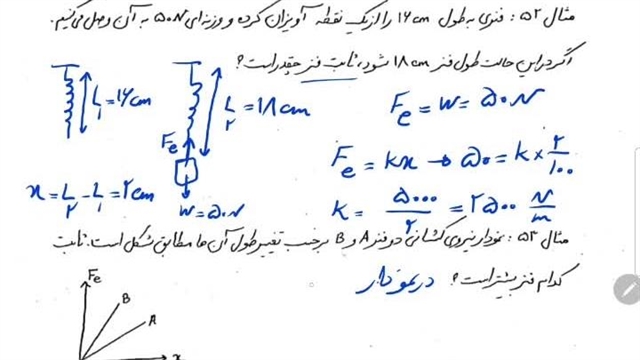 مثال ۵۲: فنری به طول ۱۶cm را از یک نقطه آویزان کرده و وزنه‌ای ۵۰N به آن وصل می‌کنیم.
اگر در این حالت طول فنر ۱۸cm شود، ثابت فنر چقدر است؟
L₁ = ۱۶cm
L₂ = ۱۸cm
Fe = W = ۵۰N
Fe
Fe = kx → ۵۰ = k × ۲/۱۰۰
x = L₂ - L₁ = ۲cm
W = ۵۰N
k = ۵۰۰۰/۲ = ۲۵۰۰ N/m
مثال ۵۳: نمودار نیروی کشسانی دو فنر A و B برحسب تغییر طول آن ها مطابق شکل است. ثابت
کدام فنر بیشتر است؟ در نمودار
Fe
B
A
x